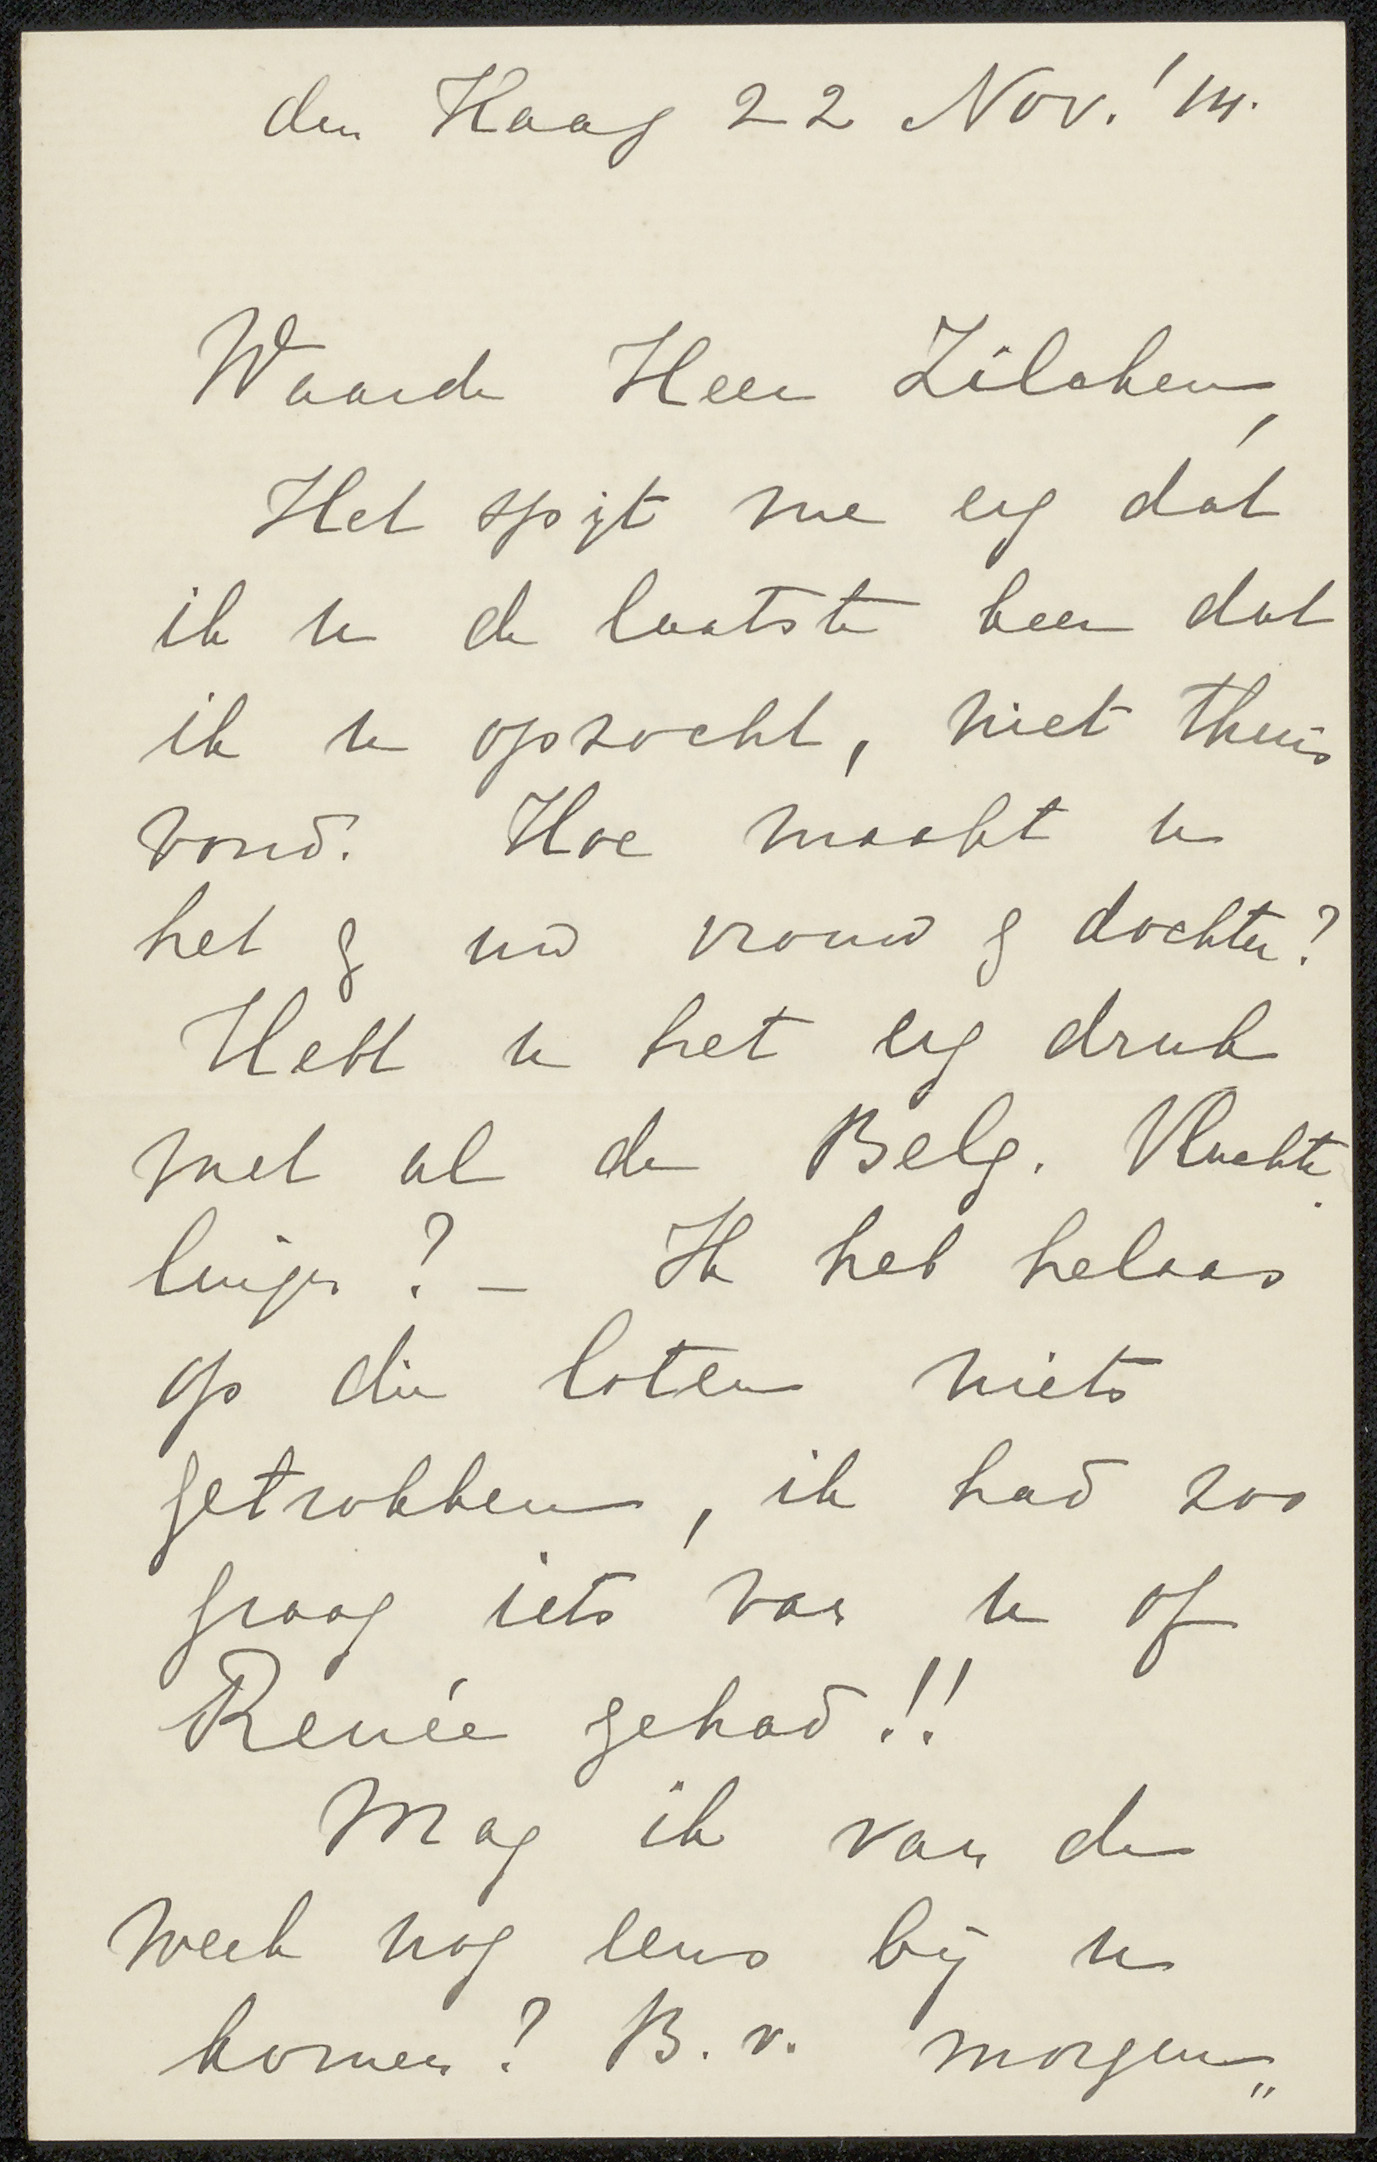 den Haag 22 Nov. '14.
Waarde Heer Zilcken,
Het spijt me erg dat
ik u de laatste keer dat
ik u opzocht, niet thuis
vond. Hoe maakt u
het & uw vrouw & dochter?
Hebt u het erg druk
met al de Belg. Vluchte
lingen? – Ik heb helaas
op die loten niets
getrokken, ik had zoo
graag iets van u of
Renée gehad!!
Mag ik van de
week nog eens bij u
komen? B.v. morgen„